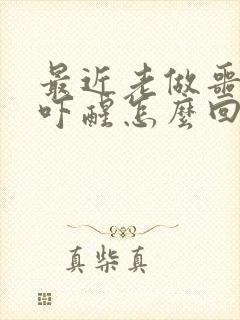 最近老做噩
吓醒怎麼回
真柴真